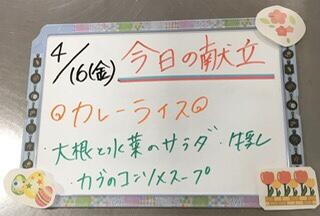 4/16(金) 今日の献立
◎カレーライス◎
・大根と水菜のサラダ ・牛乳
・カブのコンソメスープ